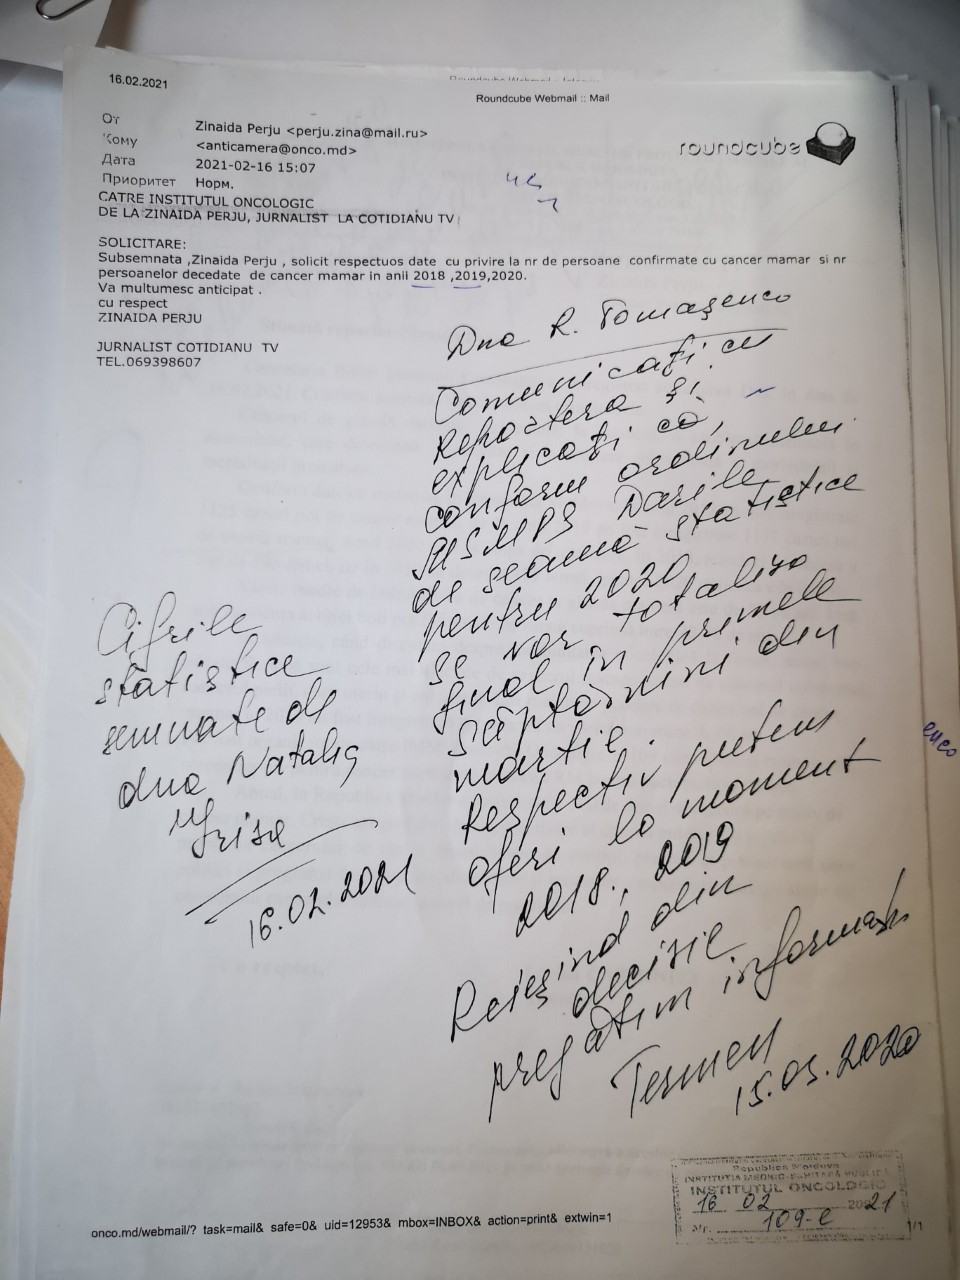 16.02.2021
Roundcube Webmail :: Mail
roundcube
От Zinaida Perju <perju.zina@mail.ru>
Кому <anticamera@onco.md>
Дата 2021-02-16 15:07
Приоритет Норм.
CATRE INSTITUTUL ONCOLOGIC
DE LA ZINAIDA PERJU, JURNALIST LA COTIDIANU TV
SOLICITARE:
Subsemnata ,Zinaida Perju , solicit respectuos date cu privire la nr de persoane confirmate cu cancer mamar si nr
persoanelor decedate de cancer mamar in anii 2018 ,2019,2020.
Va multumesc anticipat .
cu respect
ZINAIDA PERJU
JURNALIST COTIDIANU TV
TEL.069398607
Dna R. Tomașenco
Comunicați cu
Reportera și
explicați că,
conform ordinului
MSMPS Dările
de seamă statistice
pentru 2020
se vor totaliza
final în primele
săptămîni din
martie.
Respectiv putem
oferi la moment
2018, 2019
Reieșind din
decizie
pregătim informați
Termen
15.03.2020
Cifrile
statistice
semnate de
dna Natalia
16.02.2021
enco
Republica Moldova
INSTITUTUL ONCOLOGIC
16 02 2021
Nr. 109-e
onco.md/webmail/? task=mail& safe=0& uid=12953& mbox=INBOX& action=print& extwin=1
1/1